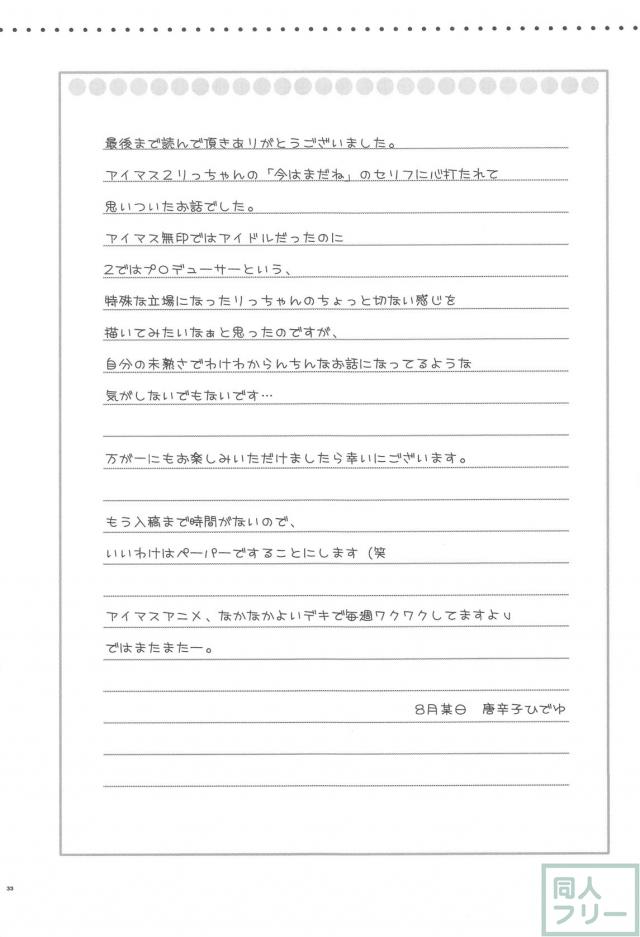 最後まで読んで頂きありがとうございました。
アイマス2りっちゃんの「今はまだね」のセリフに心打たれて
思いついたお話でした。
アイマス無印ではアイドルだったのに
2ではプロデューサーという、
特殊な立場になったりっちゃんのちょっと切ない感じを
描いてみたいなぁと思ったのですが、
自分の未熟さでわけわからんちんなお話になってるような
気がしないでもないです…
万が一にもお楽しみいただけましたら幸いにございます。
もう入稿まで時間がないので、
いいわけはペーパーですることにします（笑
アイマスアニメ、なかなかよいデキで毎週ワクワクしてますよ
ではまたまたー。
8月某日　唐辛子ひでゆ
33
同人
フリー